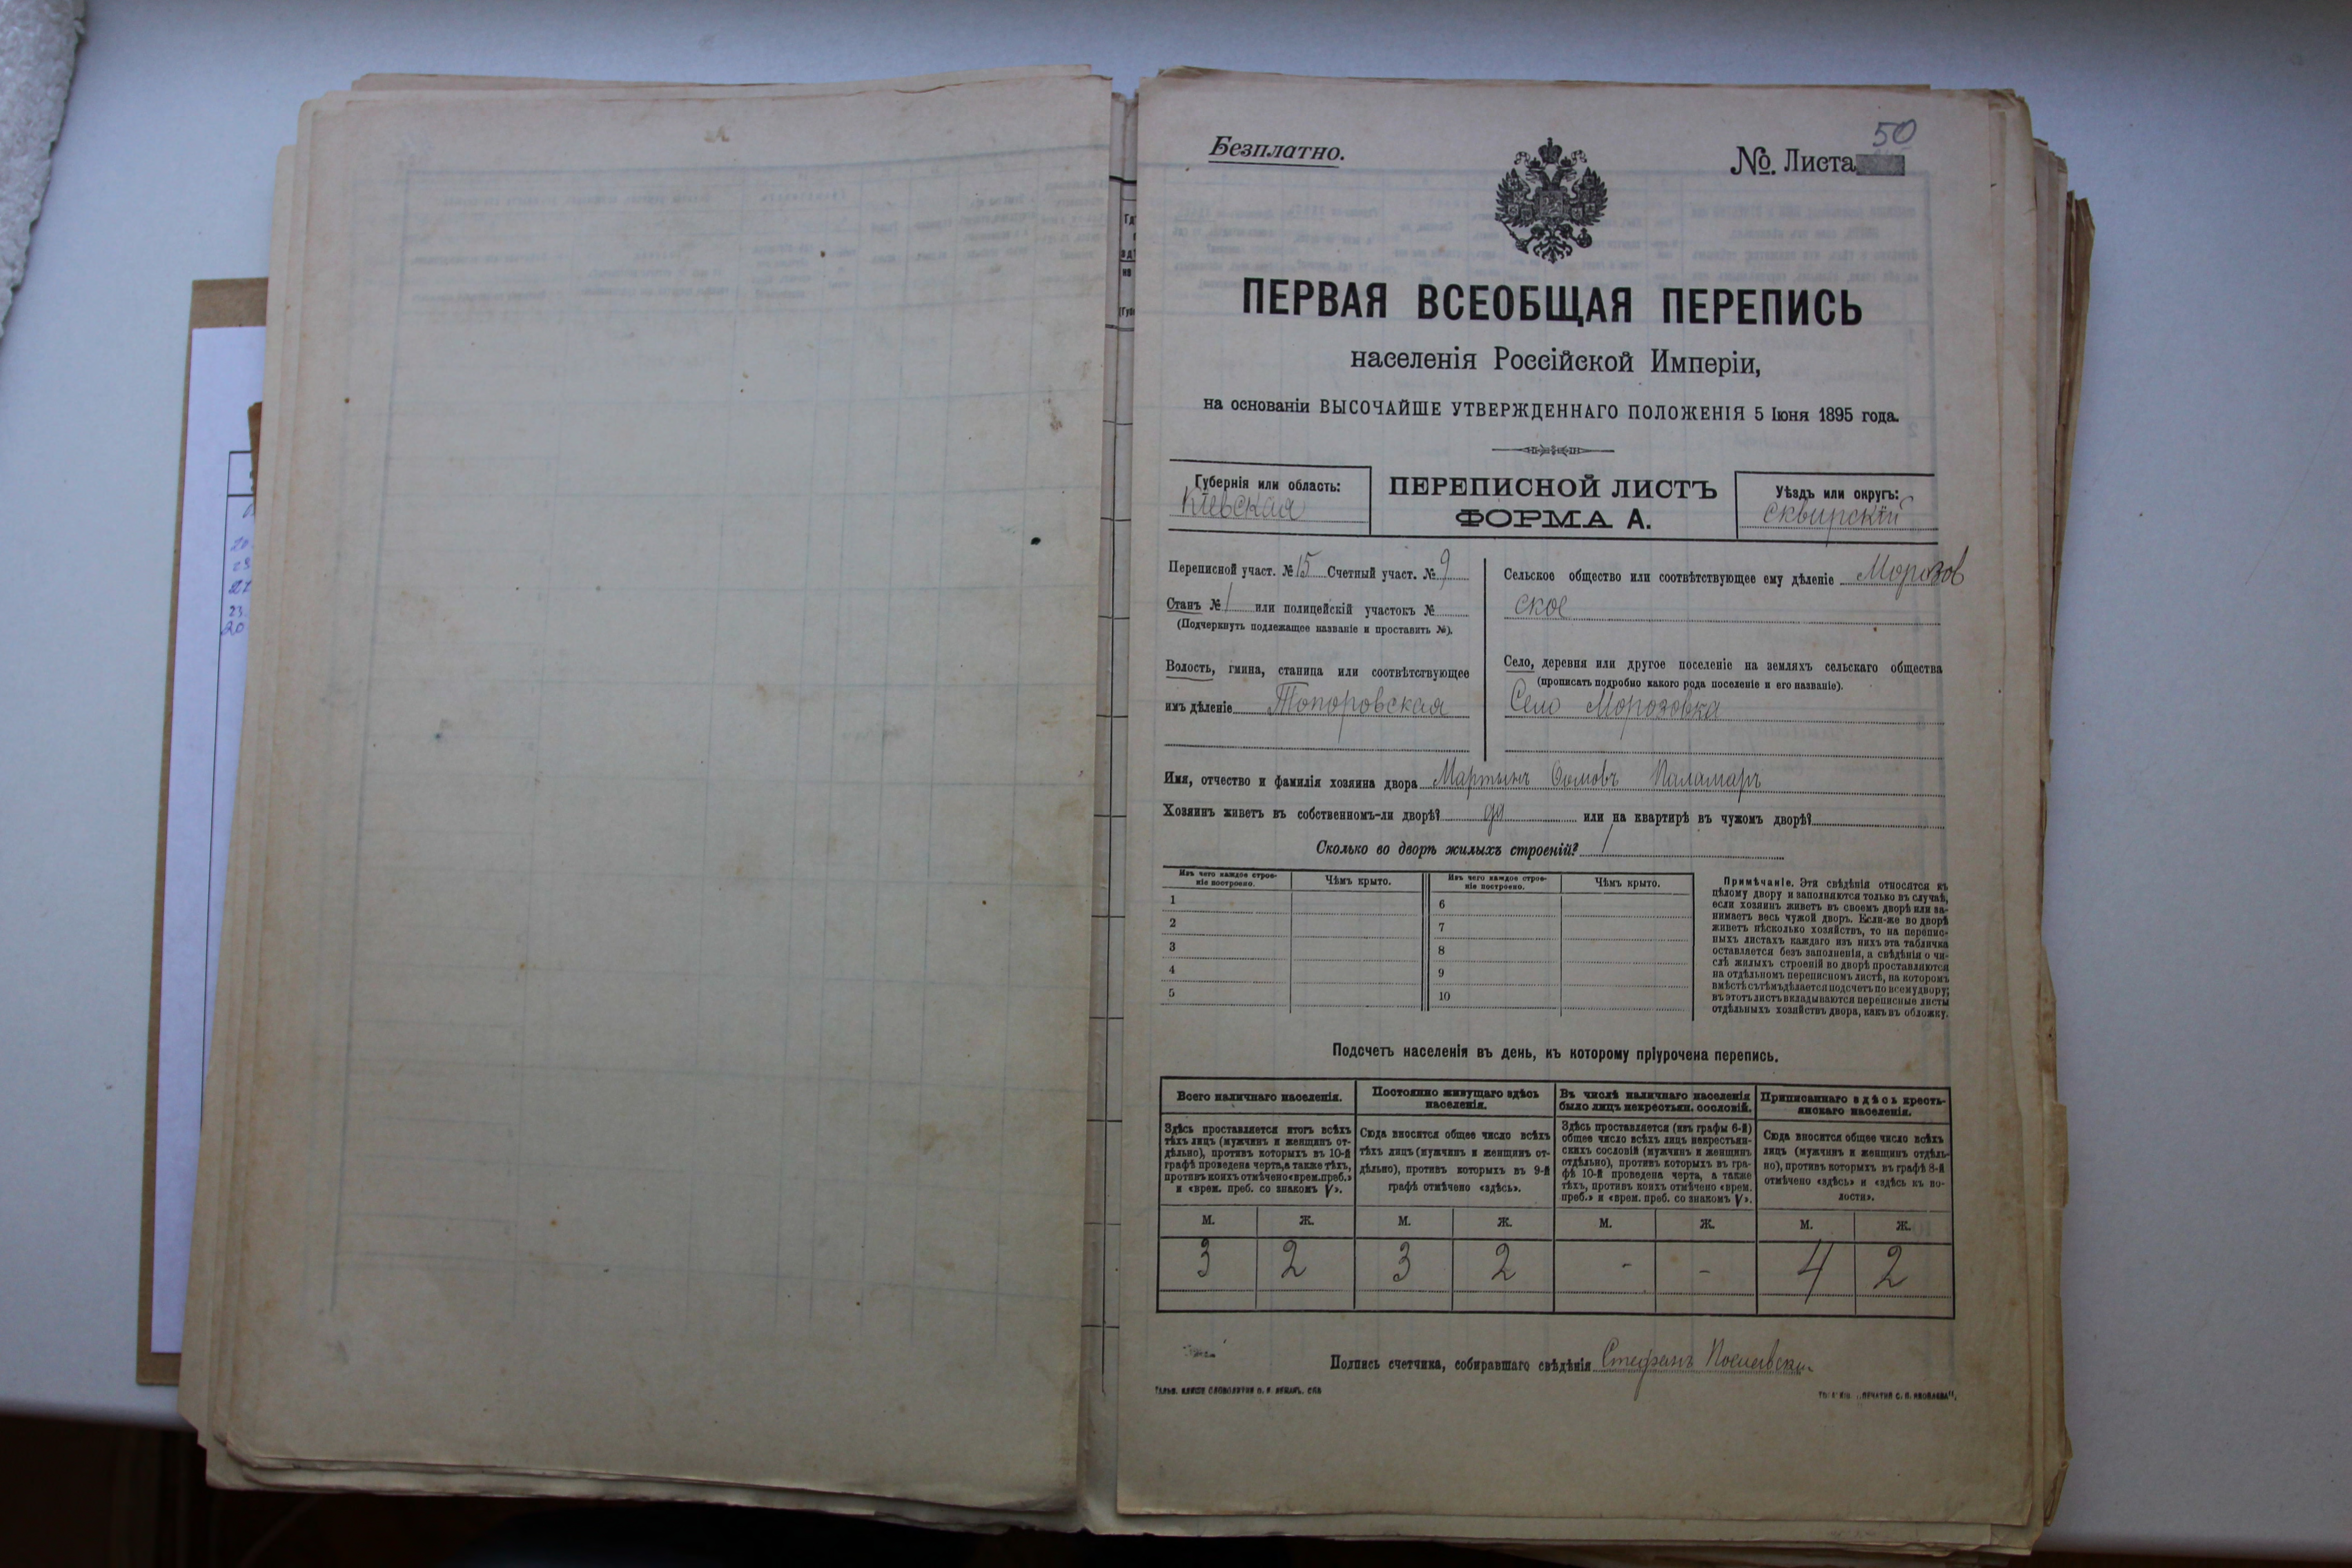 50
Безплатно.
№. Листа
ПЕРВАЯ ВСЕОБЩАЯ ПЕРЕПИСЬ
населенія Россійской Имперіи,
на основаніи ВЫСОЧАЙШЕ УТВЕРЖДЕННАГО ПОЛОЖЕНІЯ 5 Іюня 1895 года.
Губернія или область:
Кіевская
ПЕРЕПИСНОЙ ЛИСТЪ
ФОРМА А.
Уѣздъ или округъ:
Сквирскій
Переписной участ. № 15 Счетный участ. № 9
Станъ № 1 или полицейскій участокъ №
(Подчеркнуть подлежащее названіе и проставить №).
Волость, гмина, станица или соотвѣтствующее
имъ дѣленіе Топоровская
Сельское общество или соотвѣтствующее ему дѣленіе Морозов
ское
Село, деревня или другое поселеніе на земляхъ сельскаго общества
(прописать подробно какого рода поселеніе и его названіе).
Село Морозовка
Имя, отчество и фамилія хозяина двора Мартынъ Паламаръ
Хозяинъ живетъ въ собственномъ-ли дворѣ? да или на квартирѣ въ чужомъ дворѣ?
Сколько во дворѣ жилыхъ строеній? 1
Изъ чего каждое строе-
ніе построено.
Чѣмъ крыто.
1
2
3
4
5
Изъ чего каждое строе-
ніе построено.
Чѣмъ крыто.
6
7
8
9
10
Примѣчаніе. Эти свѣдѣнія относятся къ
цѣлому двору и заполняются только въ случаѣ,
если хозяинъ живетъ въ своемъ дворѣ или за-
нимаетъ весь чужой дворъ. Если-же во дворѣ
живетъ нѣсколько хозяйствъ, то на перепис-
ныхъ листахъ каждаго изъ нихъ эта табличка
оставляется безъ заполненія, а свѣдѣнія о чи-
слѣ жилыхъ строеній во дворѣ проставляются
на отдѣльномъ переписномъ листѣ, на которомъ
вмѣстѣ съ тѣмъ дѣлается подсчетъ по всему двору;
въ этотъ листъ вкладываются переписные листы
отдѣльныхъ хозяйствъ двора, какъ въ обложку.
Подсчетъ населенія въ день, къ которому пріурочена перепись.
Всего наличнаго населенія.
Здѣсь проставляется итогъ всѣхъ
тѣхъ лицъ (мужчинъ и женщинъ от-
дѣльно), противъ которыхъ въ 10-й
графѣ проведена черта, а также тѣхъ,
противъ коихъ отмѣчено «врем. преб.»
и «врем. преб. со знакомъ V».
М. Ж.
3 2
Постоянно живущаго здѣсь
населенія.
Сюда вносится общее число всѣхъ
тѣхъ лицъ (мужчинъ и женщинъ от-
дѣльно), противъ которыхъ въ 9-й
графѣ отмѣчено «здѣсь».
М. Ж.
3 2
Въ числѣ наличнаго населенія
было лицъ некрестьян. сословій.
Здѣсь проставляется (изъ графы 6-й)
общее число всѣхъ лицъ некрестьян-
скихъ сословій (мужчинъ и женщинъ
отдѣльно), противъ которыхъ въ гра-
фѣ 10-й проведена черта, а также
тѣхъ, противъ коихъ отмѣчено «врем.
преб.» и «врем. преб. со знакомъ V».
М. Ж.
- -
Приписаннаго здѣсь кресть-
янскаго населенія.
Сюда вносится общее число всѣхъ
лицъ (мужчинъ и женщинъ отдѣль-
но), противъ которыхъ въ графѣ 8-й
отмѣчено «здѣсь» и «здѣсь къ во-
лости».
М. Ж.
4 2
Подпись счетчика, собиравшаго свѣдѣнія Стефанъ